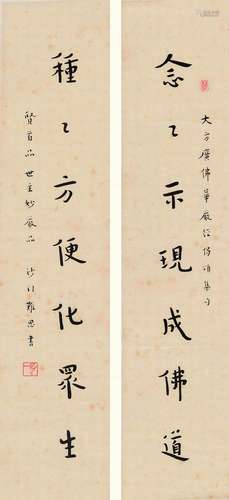 大方廣佛華嚴經偈頌集句
念〻示現成佛道
種〻方便化眾生
賢首品 世主妙嚴品 沙門